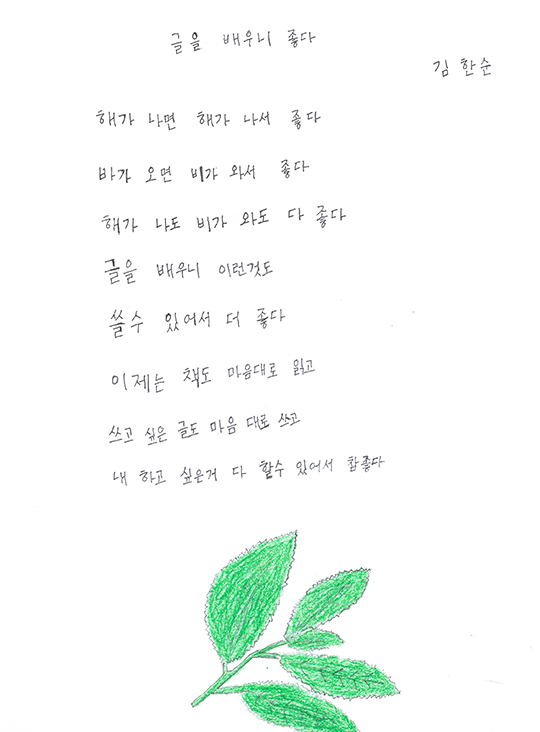 글을 배우니 좋다
김 한순
해가 나면 해가 나서 좋다
바가 오면 비가 와서 좋다
해가 나도 비가 와도 다 좋다
글을 배우니 이런것도
쓸수 있어서 더 좋다
이제는 책도 마음대로 읽고
쓰고 싶은 글도 마음 대로 쓰고
내 하고 싶은거 다 할수 있어서 참좋다